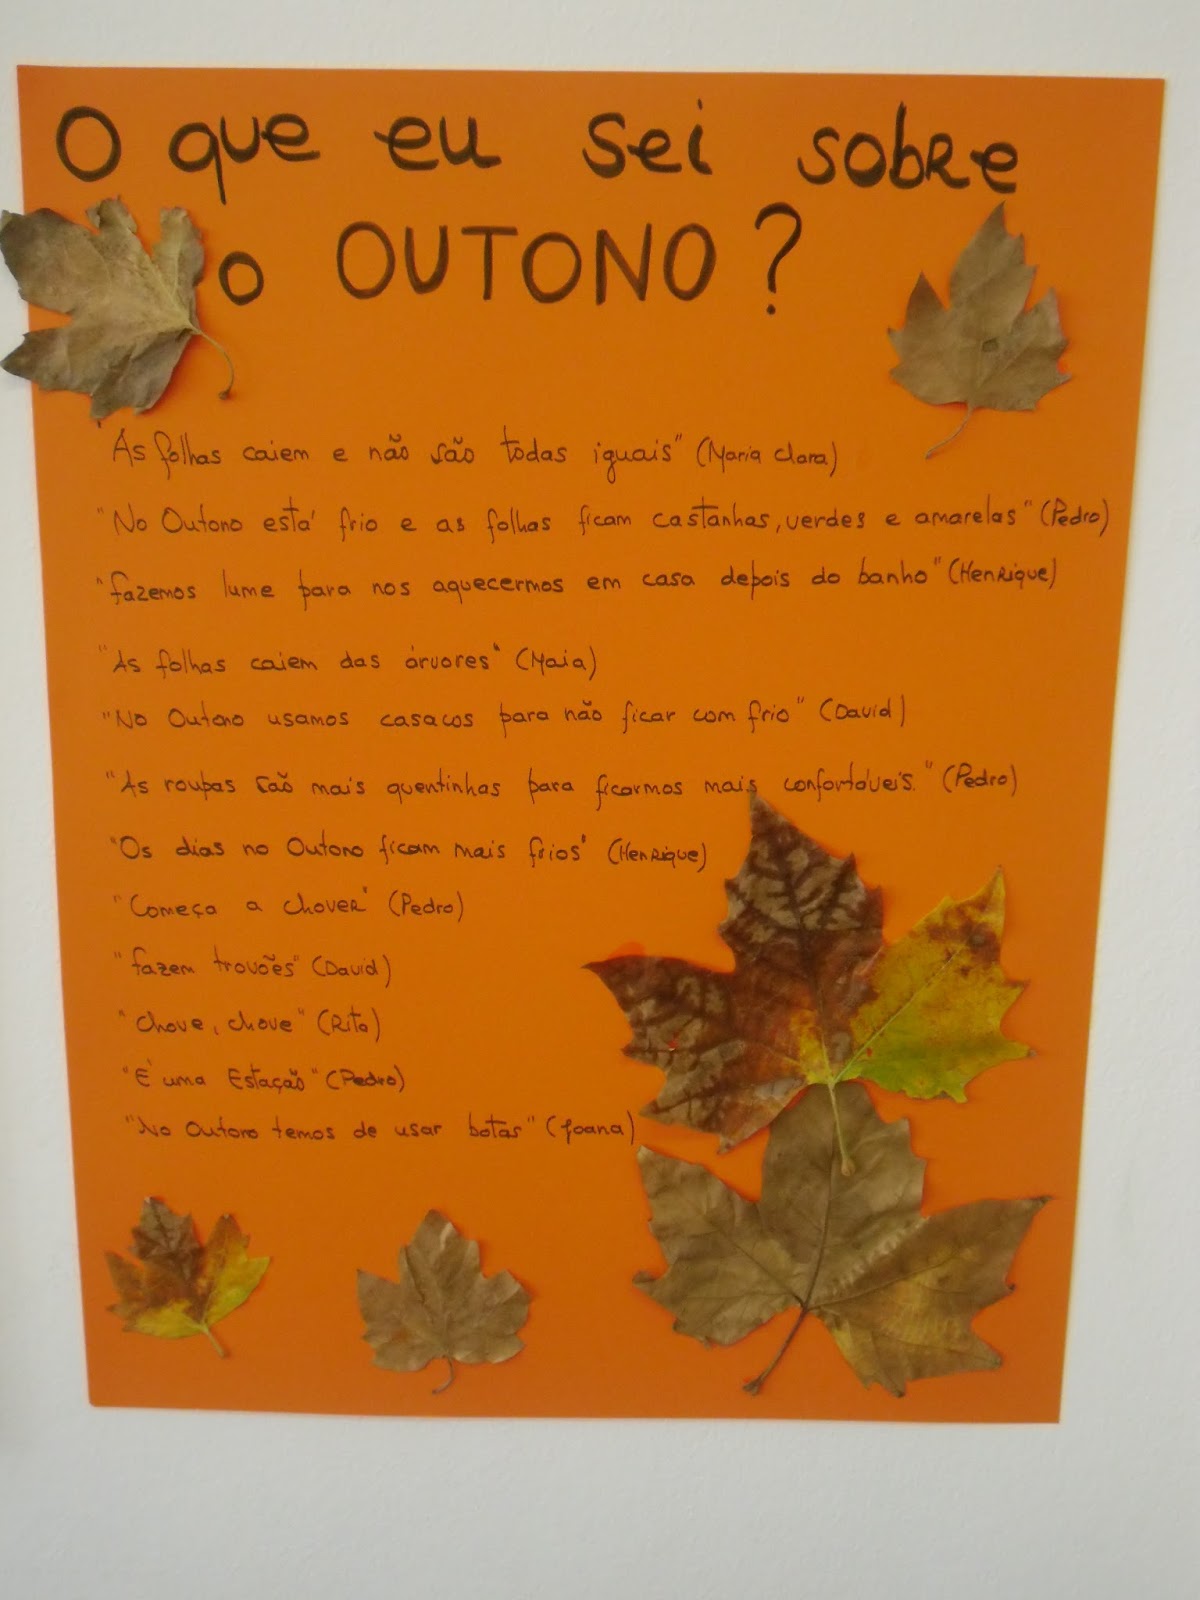 O que eu sei sobre
o OUTONO?
"As folhas caiem e não são todas iguais" (Maria Clara)
"No Outono está frio e as folhas ficam castanhas, verdes e amarelas" (Pedro)
"fazemos lume para nos aquecermos em casa depois do banho" (Henrique)
"As folhas caiem das árvores" (Maia)
"No Outono usamos casacos para não ficar com frio" (David)
"As roupas são mais quentinhas para ficarmos mais confortáveis." (Pedro)
"Os dias no Outono ficam mais frios" (Henrique)
"Começa a chover" (Pedro)
"fazem trovões" (David)
"Chove, chove" (Rita)
"É uma Estação" (Pedro)
"No Outono temos de usar botas" (Joana)